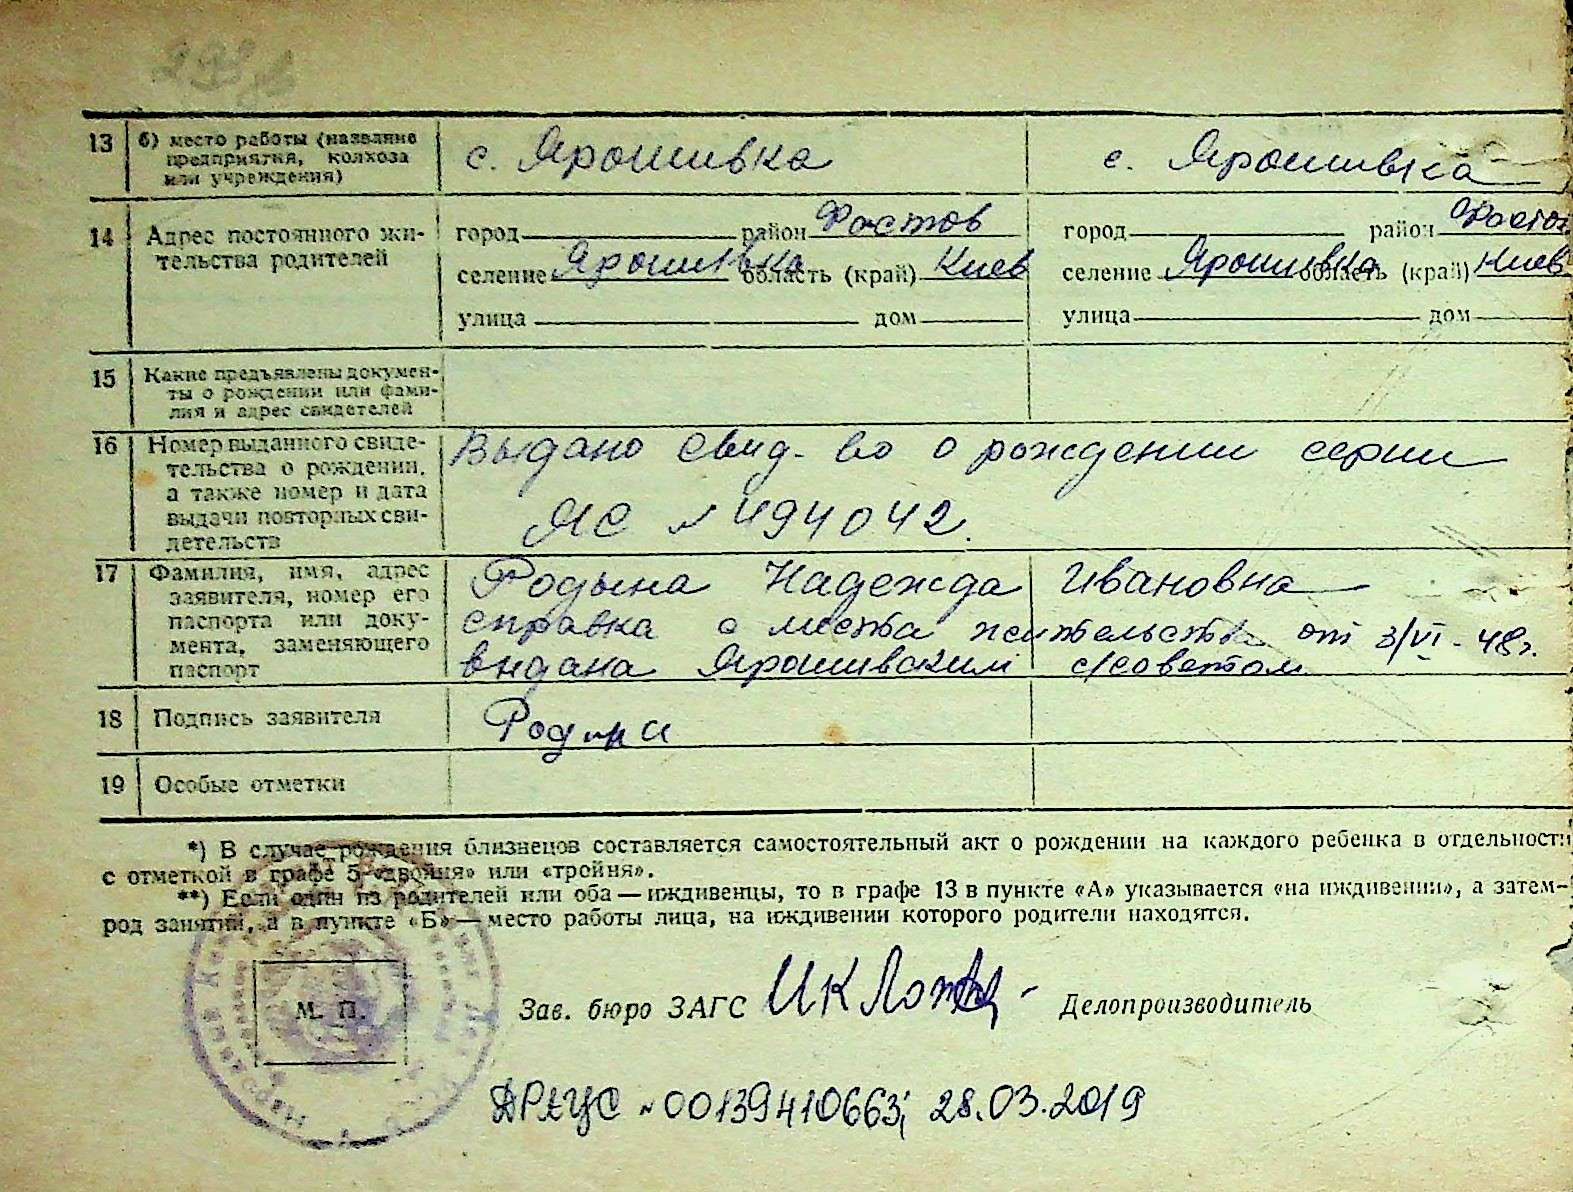 13 б) место работы (название предприятия, колхоза или учреждения) с. Ярошивка с. Ярошивка
14 Адрес постоянного жи-
тельства родителей
город район Фастов город район Фастов
селение Ярошивка область (край) Киев селение Ярошивка область (край) Киев
улица дом улица дом
15 Какие предъявлены докумен-
ты о рождении или фами-
лия и адрес свидетелей
16 Номер выданного свиде-
тельства о рождении,
а также номер и дата
выдачи повторных сви-
детельств
Выдано свид-во о рождении серии
ЯС № 494042.
17 Фамилия, имя, адрес
заявителя, номер его
паспорта или доку-
мента, заменяющего
паспорт
Родына Надежда Ивановна
справка с места жительства от 3/VI-48г.
выдана Ярошивским с/советом
18 Подпись заявителя
19 Особые отметки
*) В случае рождения близнецов составляется самостоятельный акт о рождении на каждого ребенка в отдельности
с отметкой в графе 5 «двойня» или «тройня».
**) Если один из родителей или оба — иждивенцы, то в графе 13 в пункте «А» указывается «на иждивении», а затем —
род занятий, а в пункте «Б» — место работы лица, на иждивении которого родители находятся.
М. П.
Зав. бюро ЗАГС Делопроизводитель
ДРАЦС № 00139410663; 28.03.2019